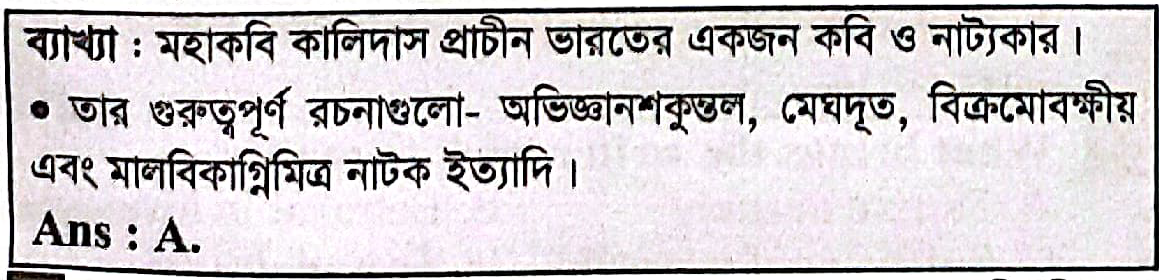 ব্যাখ্যা : মহাকবি কালিদাস প্রাচীন ভারতের একজন কবি ও নাট্যকার।
• তার গুরুত্বপূর্ণ রচনাগুলো- অভিজ্ঞানশকুন্তল, মেঘদূত, বিক্রমোবক্ষীয়
এবং মালবিকাগ্নিমিত্র নাটক ইত্যাদি।
Ans : A.